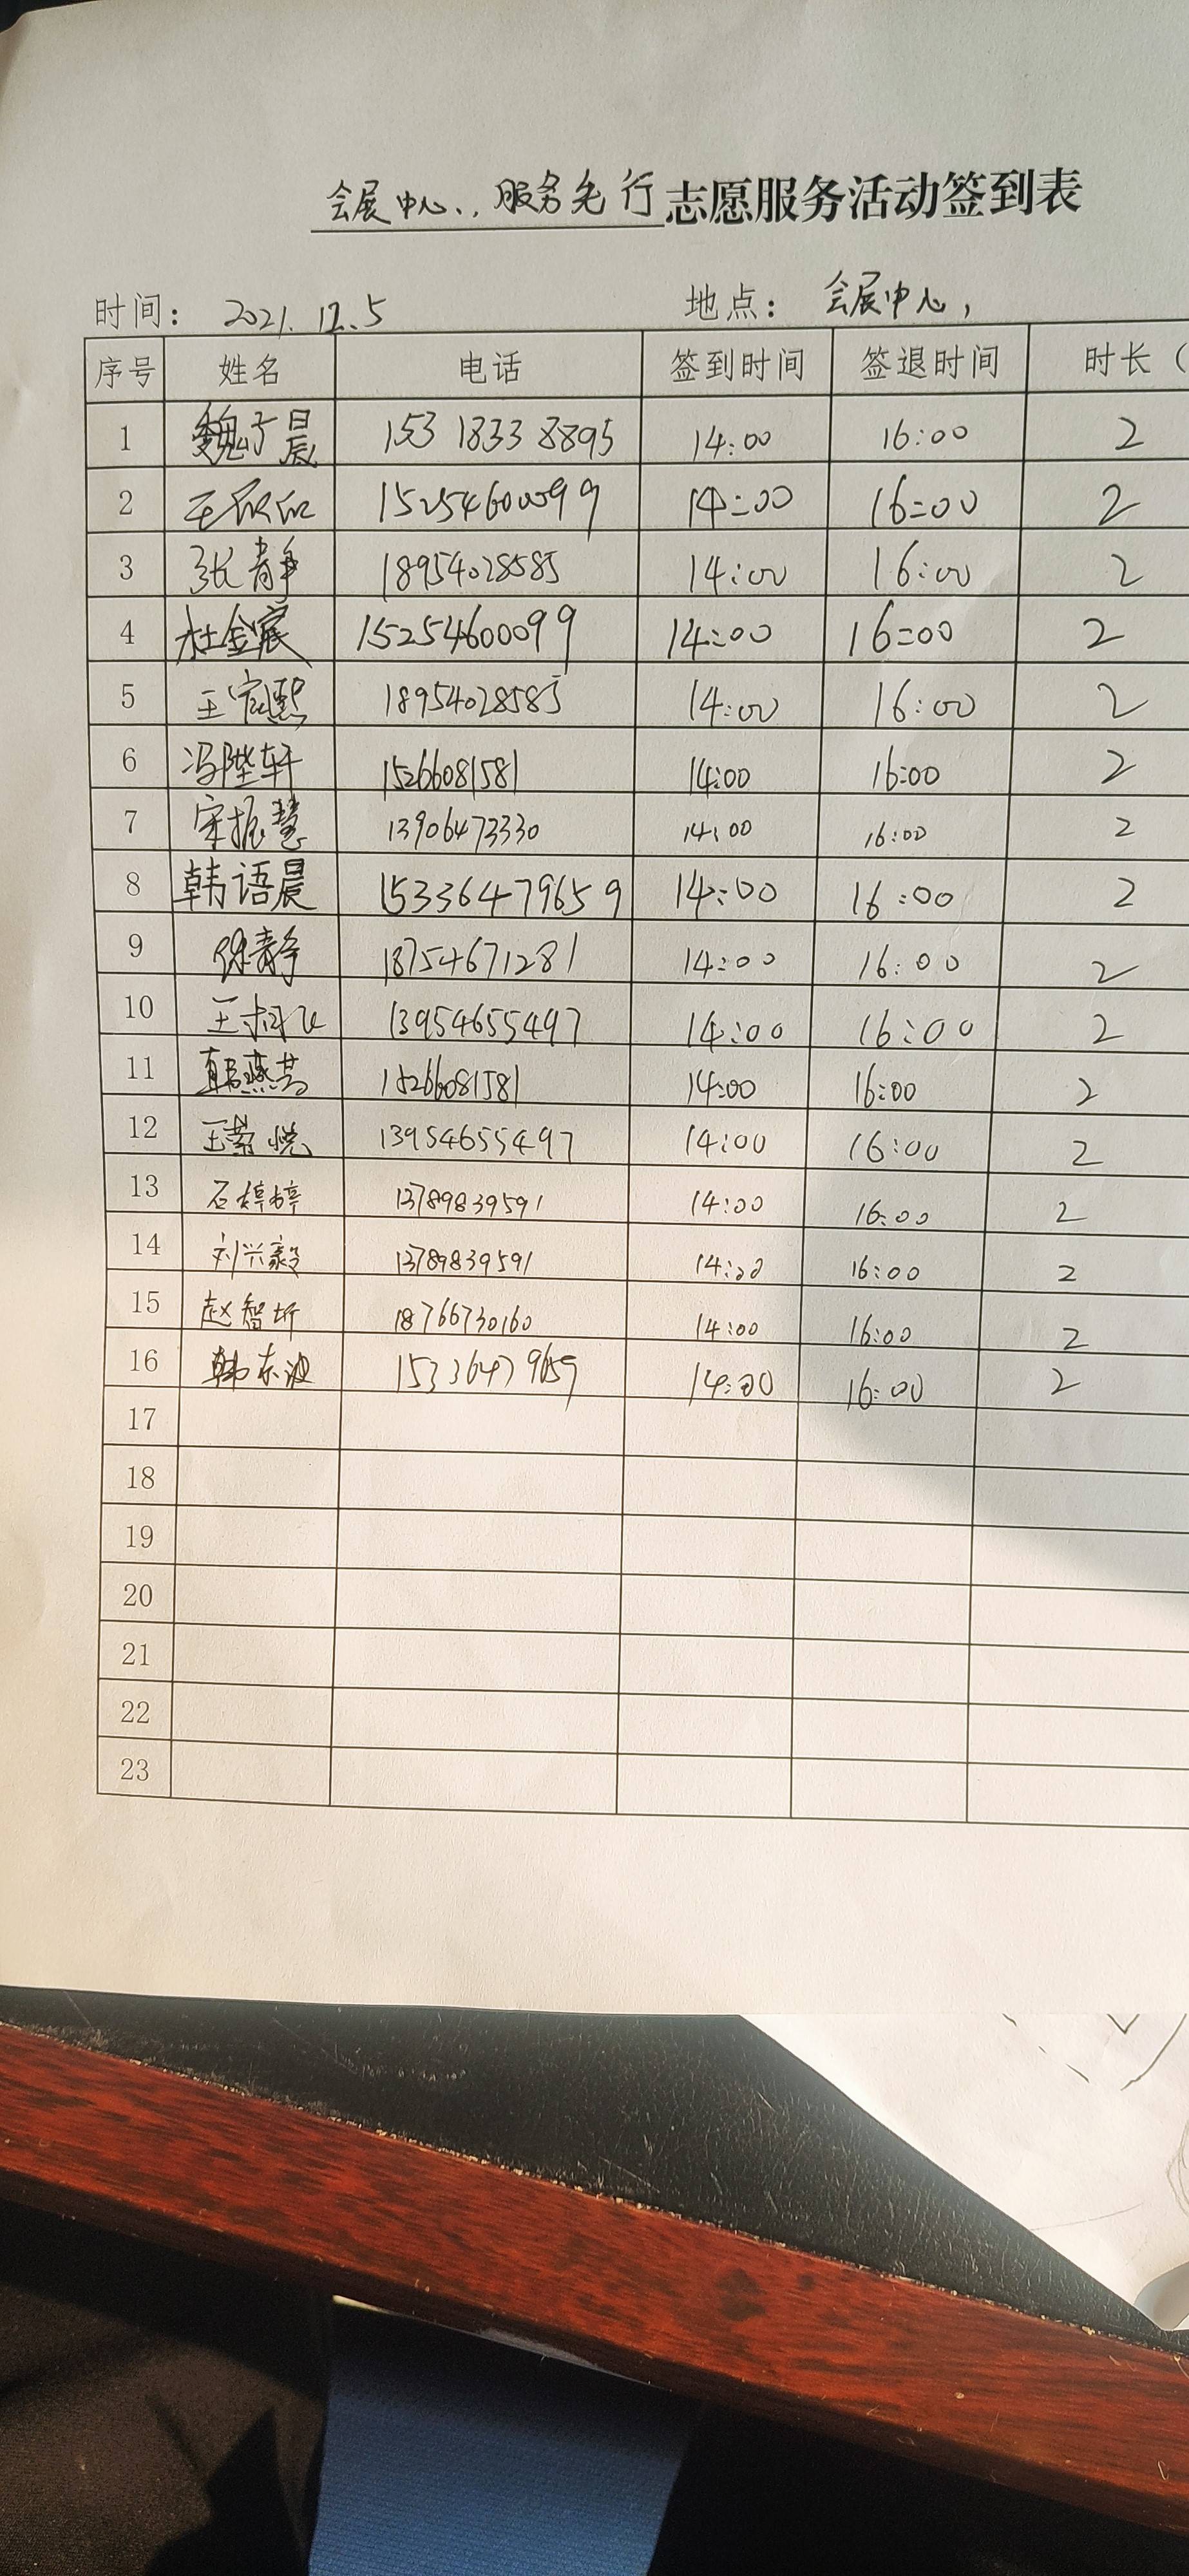 会展中心,, 服务先行志愿服务活动签到表
时间: 2021.12.5 地点: 会展中心,
序号 姓名 电话 签到时间 签退时间 时长(
1 魏于晨 15318338895 14:00 16:00 2
2 王 15254600099 14:00 16:00 2
3 张静 18954028585 14:00 16:00 2
4 杜金宸 15254600099 14:00 16:00 2
5 王宦熙 18954028585 14:00 16:00 2
6 冯陛轩 15266081581 14:00 16:00 2
7 宋振慧 13906473330 14:00 16:00 2
8 韩语晨 15336479659 14:00 16:00 2
9 徐静 18754671281 14:00 16:00 2
10 王 13954655497 14:00 16:00 2
11 韩燕芸 15266081581 14:00 16:00 2
12 王悦 13954655497 14:00 16:00 2
13 石婷婷 13789839591 14:00 16:00 2
14 刘兴毅 13789839591 14:00 16:00 2
15 赵智圻 18766730160 14:00 16:00 2
16 韩东波 15336479659 14:00 16:00 2
17
18
19
20
21
22
23